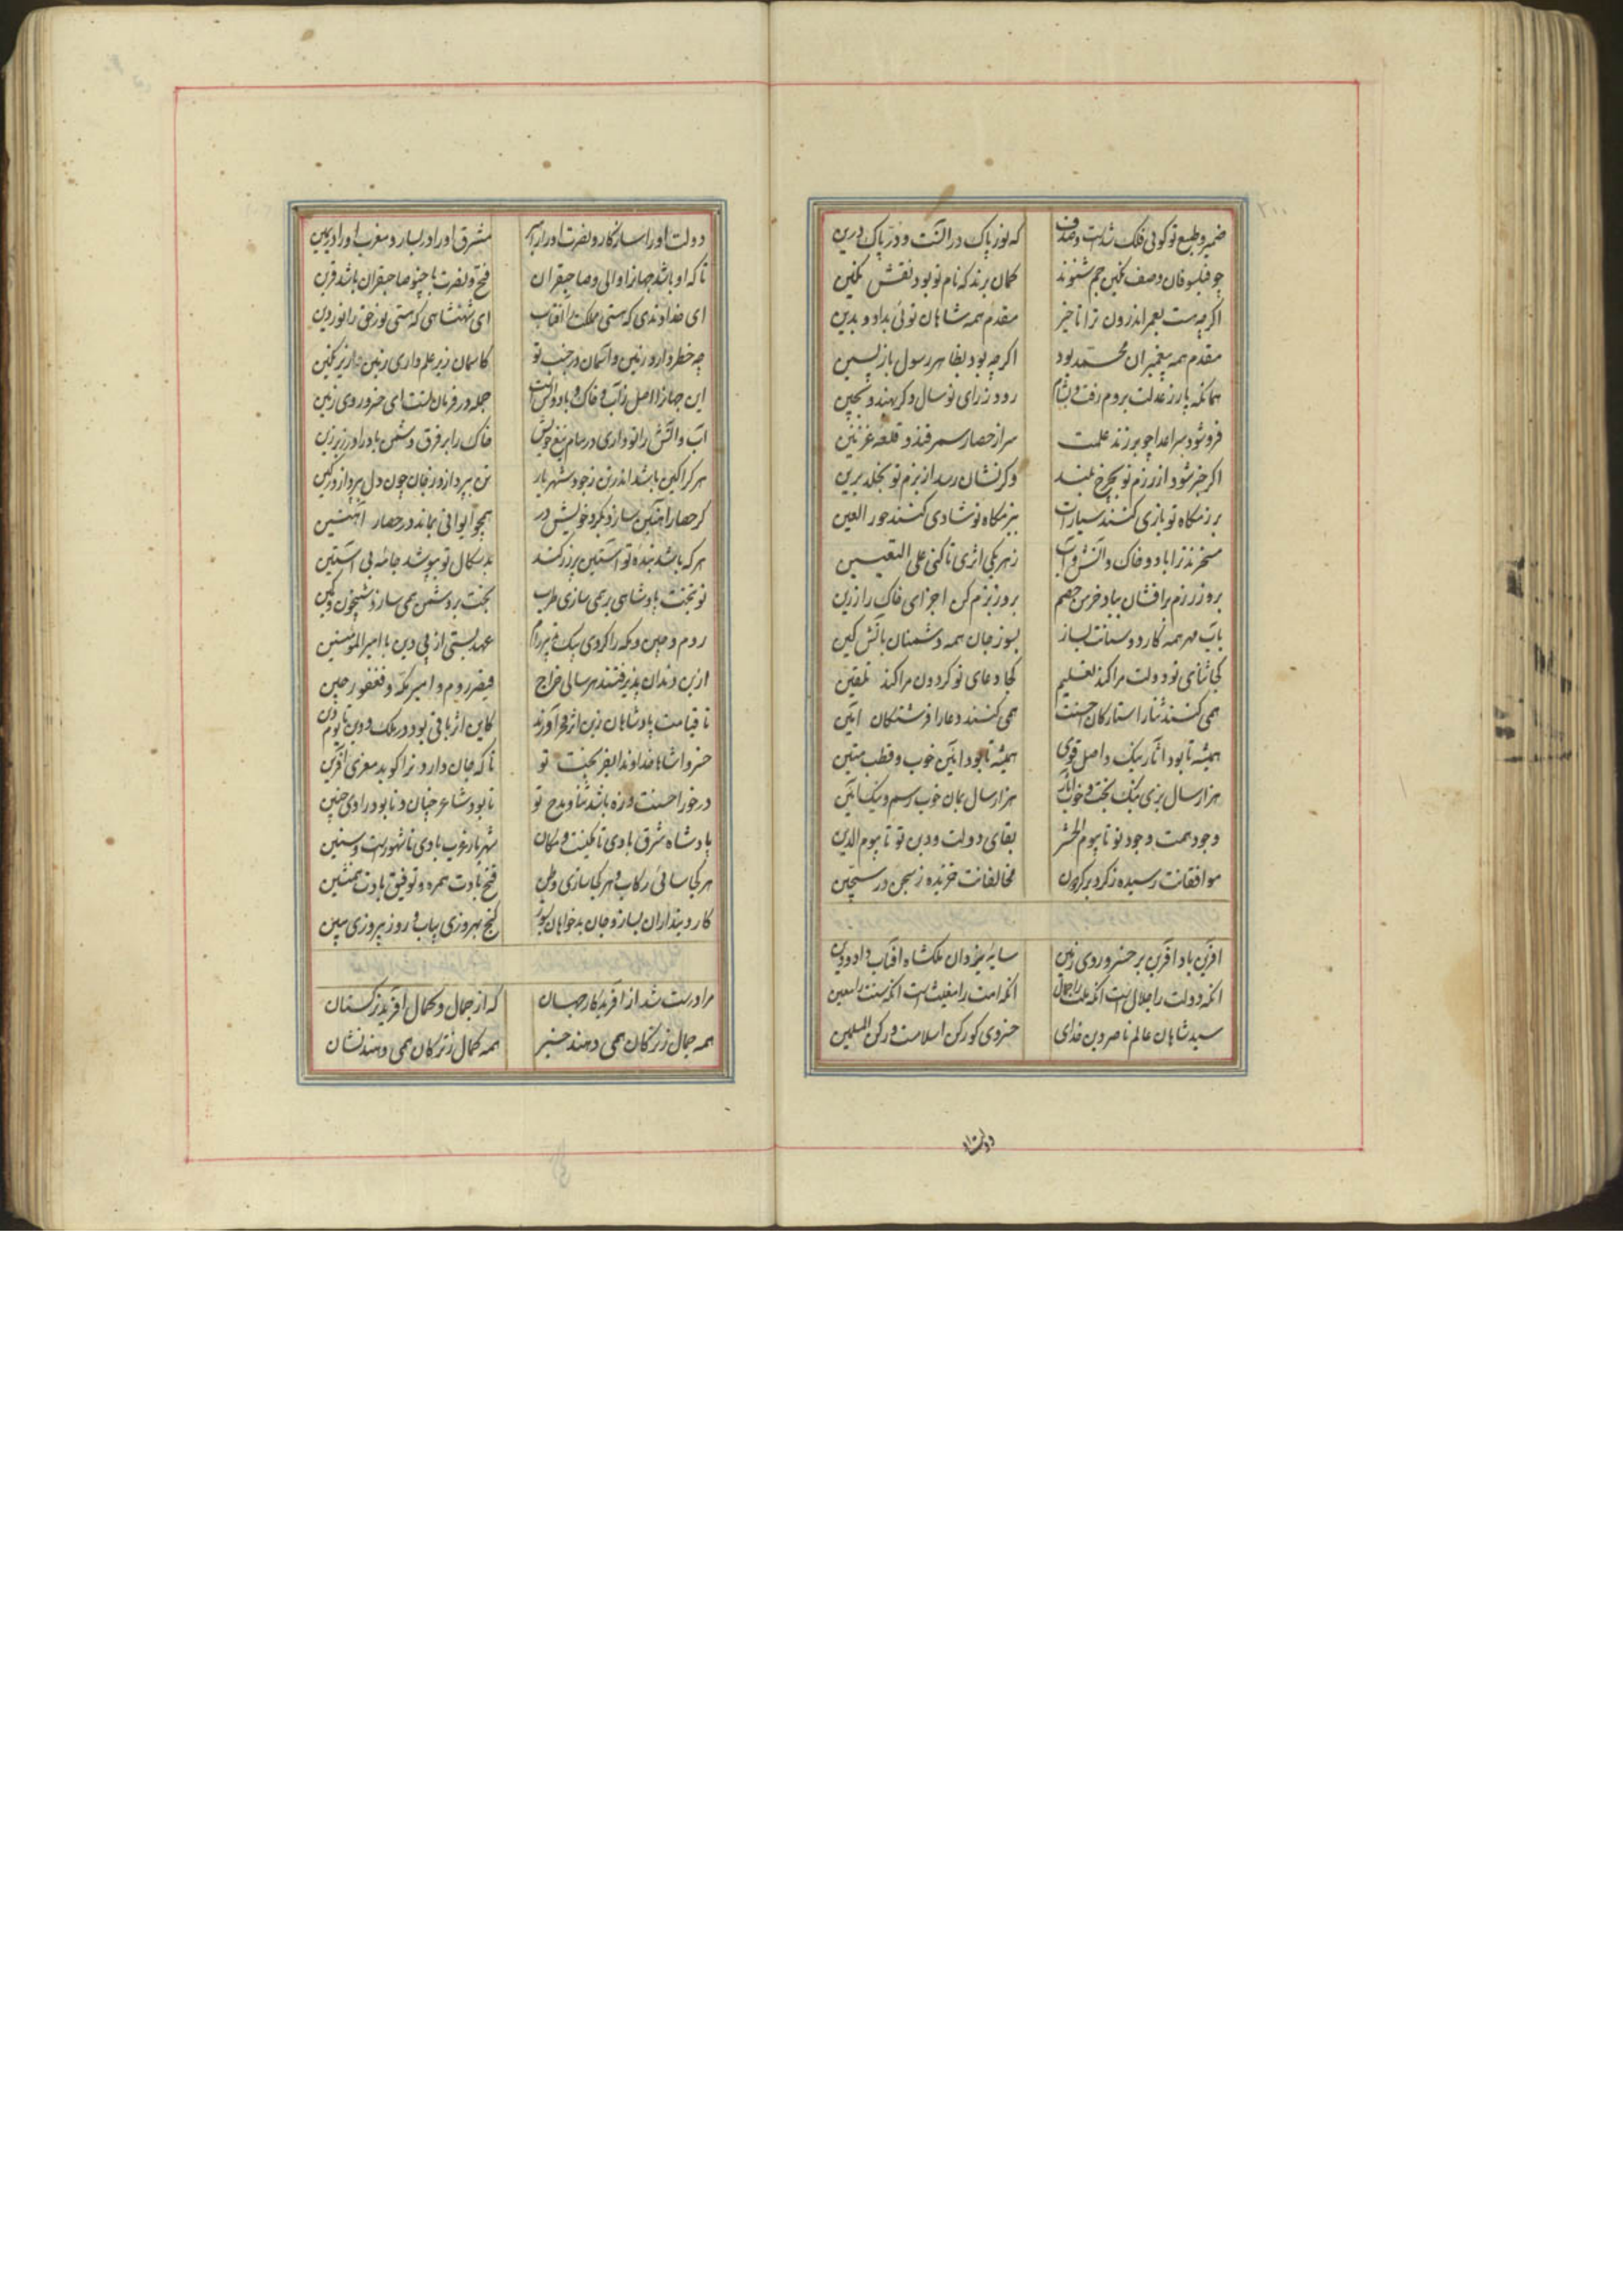 ضمیر و طبع تو کوئی فلک شدست و صدف که نور پاک در انست و در پاک درین
چو فیلسوفان وصف نکین جم شنوند کمان برند که نام تو بود نقش نکین
اکرچه هست بعمر اندرون ترا تاخیر مقدم همه شاهان توئی بداد و بدین
مقدم همه پیغمبران محمد بود اکرچه بود بظاهر رسول بازپسین
همانکه پار ز عدلت بروم رفت و بشام رود ز رای تو امسال دکر بهند و بچین
فروشود بسر اعدا چو برزند علمت سر از حصار سمرقند و قلعه غزنین
اکر خبر شود از رزم تو بچرخ بلند وکر نشان رسد از بزم تو بخلد برین
برزمکاه تو بازی کنند سیارات ببزمکاه تو شادی کنند حور العین
مسخرند ترا باد و خاک و آتش و آب ز هر یکی اثری تا کنی علی التعیین
بروز رزم برافشان بباد خرمن خصم بروز بزم کن اجزای خاک را زرین
بآب مهر همه کار دوستانت بساز بسوز جان همه دشمنان بآتش کین
کجا ثنای تو دولت مرا کند تعلیم کجا دعای تو کردون مرا کند تلقین
همی کنند ثنا را ستارکان احسنت همی کنند دعا را فرشتکان امین
همیشه تا بود آثار نیک و اصل قوی همیشه تا بود ائین خوب و قطب متین
هزار سال بزی نیک بخت و خوب آثار هزار سال بمان خوب رسم و نیک ائین
وجود همت وجود تو تا بیوم الحشر بقای دولت و دین تو تا بیوم الدین
موافقانت رسیده ز کرد بر کردون مخالفانت خزیده ز سجن در سجین
افرین باد افرین بر خسرو روی زمین سایه یزدان ملکشاه افتاب داد و دین
انکه دولت را جلال است انکه ملت را جمال انکه امت را مغیث است انکه سنت را معین
سید شاهان عالم ناصر دین خدای خسروی کو رکن اسلامست و رکن المسلمین
دولت او
دولت او را سازکار و نصرت او را مشرق او را در یسار و مغرب او را در یمین
تا که او باشد جهانرا والی و صاحبقران فتح و نصرت با چنو صاحبقران باشد قرین
ای خداوندی که هستی ملکت را آفتاب ای شهنشاهی که هستی نور حق را نور دین
چه خطر دارد زمین و آسمان در جنب تو کاسمان زیر علم داری زمین زیر نکین
این جهانرا اصل ز آب و خاک و باد و آتش است جمله در فرمان تست ای خسرو روی زمین
آب و آتش را تو داری در میان تیغ خویش خاک را بر فرق دشمن باد را در زیر زین
هر کرا کین باشد اندر تن ز جود شهریار تن بپردازد ز جان چون دل بپردازد ز کین
کر حصار آهنین سازد بکرد خویش در همچو ایوانی بماند در حصار آهنین
هرکه باشد بنده تو آستین پر زر کند بدسکال تو بپوشد جامه بی آستین
تو بتخت پادشاهی بر همی سازی طرب بختت بر دشمن همی سازد شبیخون و کمین
روم و چین و مکه را کردی بیک تدبیر رام عهد بستی از پی دین با امیرالمومنین
از بن دندان پذیرفتند هر سالی خراج قیصر روم و امیر مکه و فغفور چین
تا قیامت پادشاهان زین اثر فخر آورند کاین اثر باقی بود در ملک و دین تا یوم دین
خسروا شاها خداوندا بفر بخت تو تا که جان دارد ترا کوید معزی آفرین
درخور احسنت و زه باشد ثنا و مدح تو تا بود شاعر چنان و تا بود راوی چنین
پادشاه شرق بادی تا مکینست و مکان شهریار غرب بادی تا شهورست و سنین
هر کجا سائی رکاب و هر کجا سازی وطن فتح بادت همره و توفیق بادت همنشین
کار دینداران بساز و جان بدخواهان بسوز کنج بهروزی بیاب و روز پیروزی ببین
مرا درست شد از آفریدکار جهان که از جمال و کمال آفرید ترکستان
همه جمال ز ترکان همی دهند خبر همه کمال ز ترکان همی دهند نشان